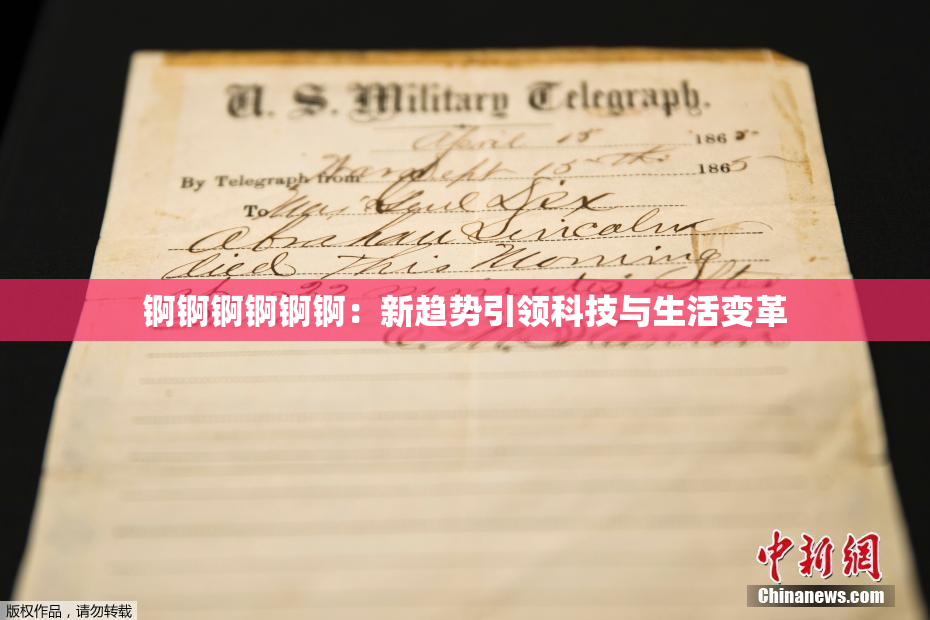 U. S. Military Telegraph.
April 15 1865
By Telegraph from War Dept 15th 1865
To Maj Genl Dix
Abraham Lincoln
died This Morning
22 minutes after
锕锕锕锕锕锕：新趋势引领科技与生活变革
中新网
Chinanews.com
版权作品，请勿转载